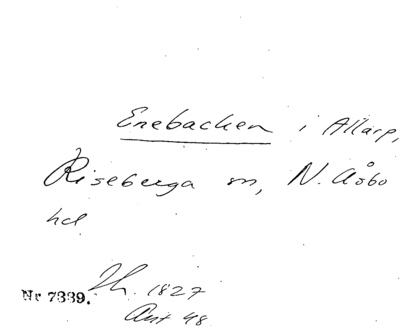 Enebacken i Allarp,
Riseberga sn, N. Åsbo
hd
Nr 7339. Jh. 1827
Ant 48